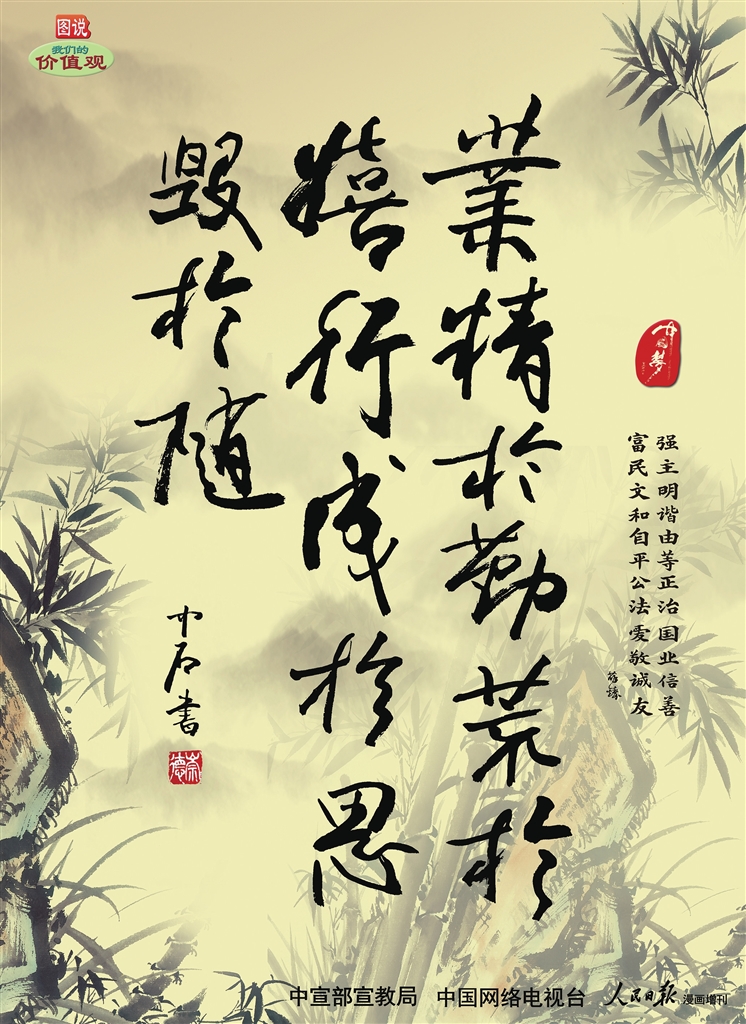 图说
我们的
价值观
業精於勤荒於
嬉行成於思
毁於随
中石書
崇德
中国梦
强主明谐由等正治国业信善
富民文和自平公法爱敬诚友
中宣部宣教局 中国网络电视台 人民日报 漫画增刊